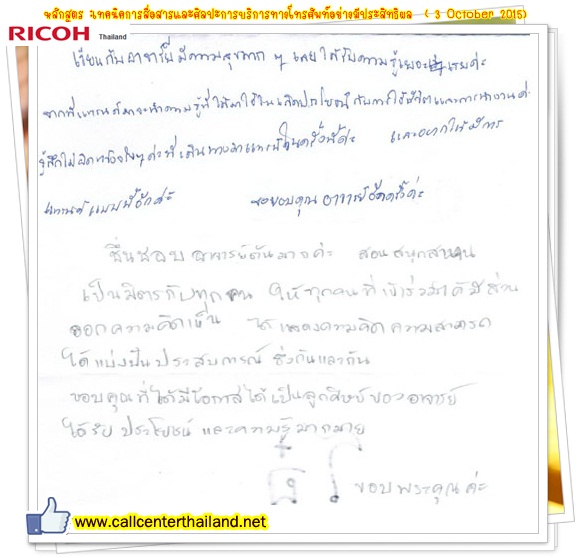 หลักสูตร :เทคนิคการสื่อสารและศิลปะการบริการทางโทรศัพท์อย่างมีประสิทธิผล ( 3 October 2015)
RICOH Thailand
เรียนกับอาจารย์มีความสุขมาก ๆ เลย ได้รับความรู้เยอะ เลยค่ะ
จะนำความรู้ที่ได้มาใช้ให้เกิดประโยชน์กับการใช้ชีวิตและการทำงานค่ะ
รู้สึกไม่ ที่เดินทางมา ครั้งนี้ค่ะ และอยากให้มีการ
แบบนี้อีกค่ะ ขอขอบคุณ อาจารย์อีกครั้งค่ะ
ชื่นชอบ อาจารย์ต้นมากค่ะ สอนสนุกสนาน
เป็นมิตรกับทุกคน ให้ทุกคนที่เข้าร่วมได้มีส่วน
ออกความคิดเห็น ได้แสดงความคิด ความสามารถ
ได้แบ่งปันประสบการณ์ ซึ่งกันและกัน
ขอบคุณที่ได้มีโอกาสได้เป็นลูกศิษย์ของอาจารย์
ได้รับ ประโยชน์ และความรู้มากมาย
ขอบพระคุณค่ะ
www.callcenterthailand.net